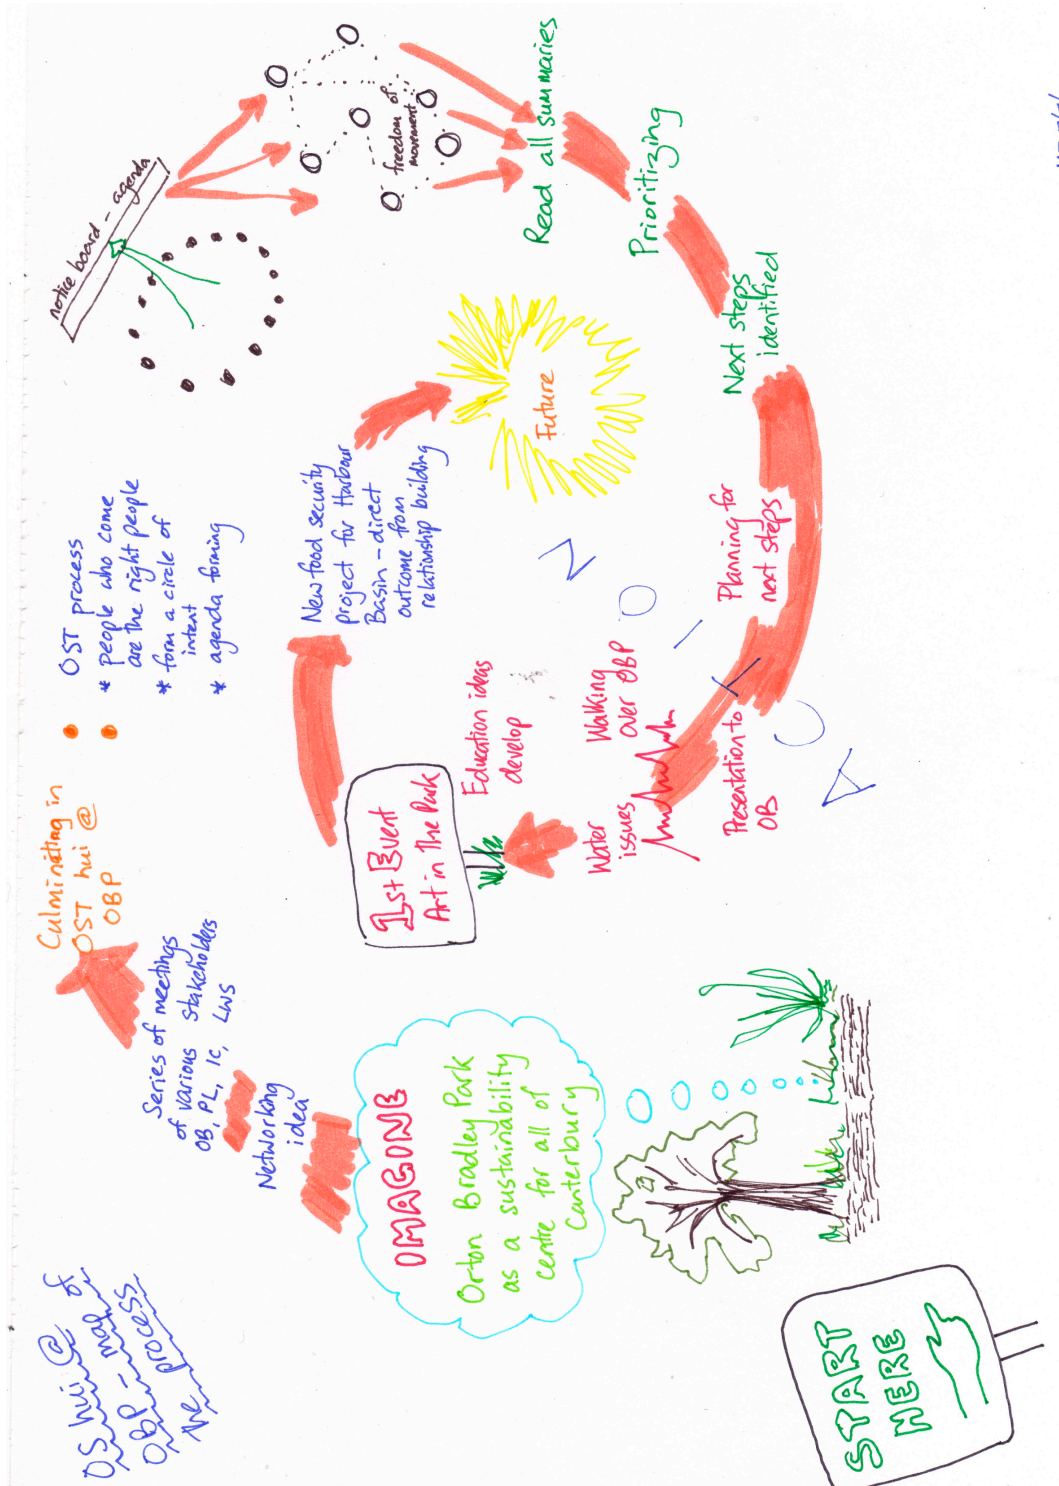 OS hui @
OBP - map of
the process
START
HERE
IMAGINE
Orton Bradley Park
as a sustainability
centre for all of
Canterbury
Networking
idea
Series of meetings
of various stakeholders
OB, PL, IC, LWS
Culminating in
OST hui @
OBP
OST process
* people who come
are the right people
* form a circle of
intent
* agenda forming
notice board - agenda
freedom of
movement
Read all summaries
Prioritizing
Next steps
identified
Planning for
next steps
Presentation to
OB
ACTION
Walking
over OBP
Water
issues
Education ideas
develop
1st Event
Art in the Park
New food security
project for Harbour
Basin - direct
outcome from
relationship building
Future